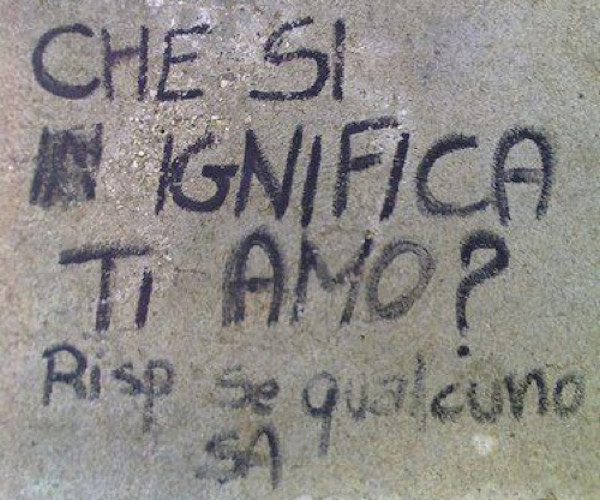 CHE SI
IGNIFICA
TI AMO?
Risp se qualcuno
SA